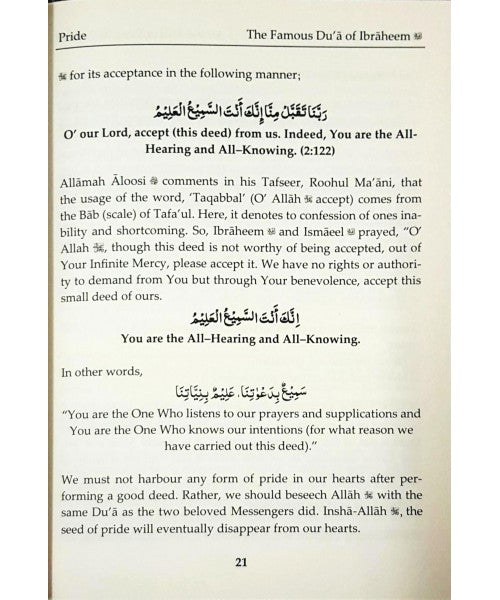 Pride The Famous Du’ā of Ibrāheem
for its acceptance in the following manner;
رَبَّنَا تَقَبَّلْ مِنَّا إِنَّكَ أَنْتَ السَّمِيْعُ الْعَلِيْمُ
O’ our Lord, accept (this deed) from us. Indeed, You are the All-
Hearing and All–Knowing. (2:122)
Allāmah Āloosi comments in his Tafseer, Roohul Ma’āni, that
the usage of the word, ‘Taqabbal’ (O’ Allāh accept) comes from
the Bāb (scale) of Tafa’ul. Here, it denotes to confession of ones ina-
bility and shortcoming. So, Ibrāheem and Ismāeel prayed, “O’
Allah , though this deed is not worthy of being accepted, out of
Your Infinite Mercy, please accept it. We have no rights or authori-
ty to demand from You but through Your benevolence, accept this
small deed of ours.
اِنَّكَ أَنْتَ السَّمِيْعُ الْعَلِيْمُ
You are the All–Hearing and All–Knowing.
In other words,
سَمِيْعٌ بِدَعْوٰتِنَا، عَلِيْمٌ بِنِيَّاتِنَا
“You are the One Who listens to our prayers and supplications and
You are the One Who knows our intentions (for what reason we
have carried out this deed).”
We must not harbour any form of pride in our hearts after per-
forming a good deed. Rather, we should beseech Allāh with the
same Du’ā as the two beloved Messengers did. Inshā-Allāh , the
seed of pride will eventually disappear from our hearts.
21